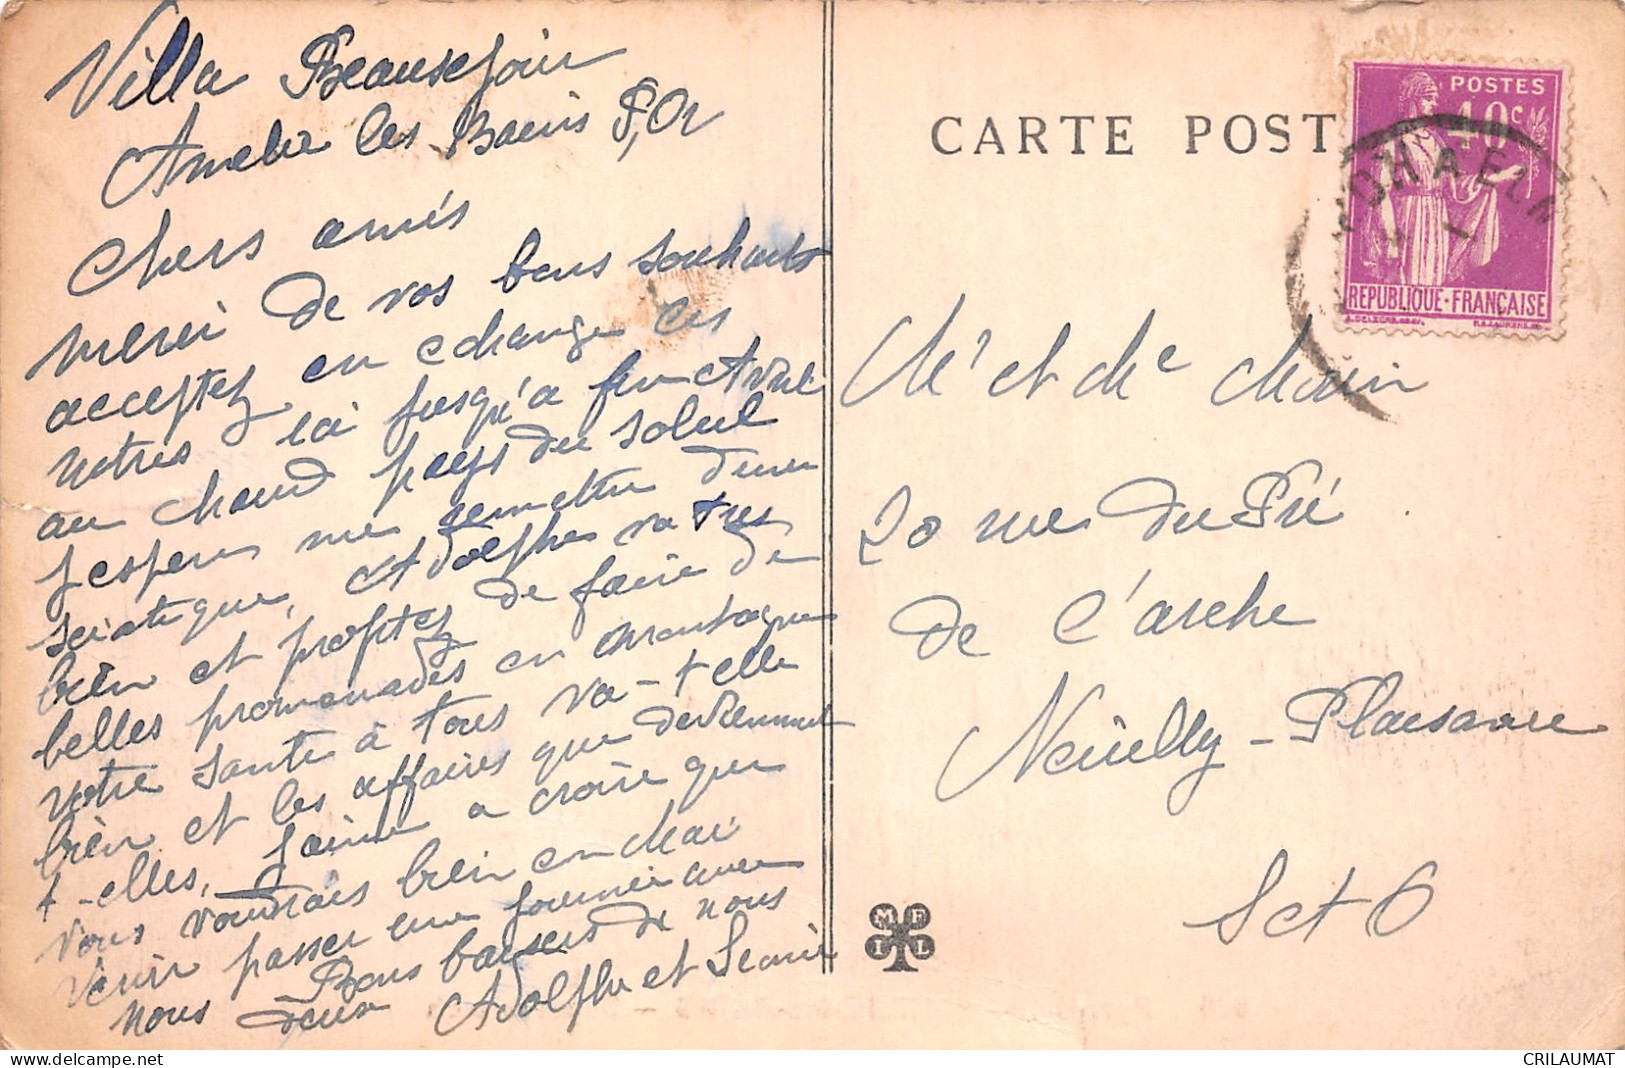 Villa Beausejour
Amelie les Bains P,Or
Chers amis
merci de vos bons souhaits
acceptez en echange les
notres ici jusqu'a fin Avril
au chaud pays du soleil
j'espere me remettre d'une
sciatique, Adolphe va tres
bien et profitez de faire de
belles promenades en montagne
votre santé à tous va-t elle
bien et les affaires que deviennent
t-elles, j'aime a croire que
vous voudrais bien en Mai
venir passer une journée avec
nous Bons baisers de nous
deux Adolphe et
CARTE POST
POSTES
40c
REPUBLIQUE·FRANÇAISE
Mr et Me Morin
20 rue du Pré
de l'arche
Neuilly-Plaisance
S et O
M F
I L
CRILAUMAT